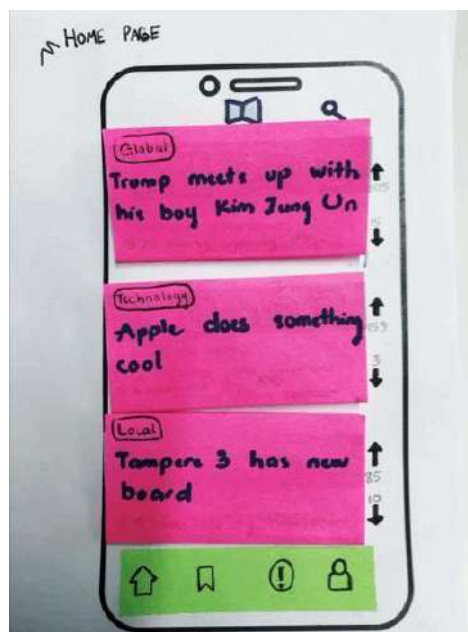 HOME PAGE
Global
Trump meets up with
his boy Kim Jung Un
Technology
Apple does something
cool
3
Local
Tampere 3 has new
board
85
10